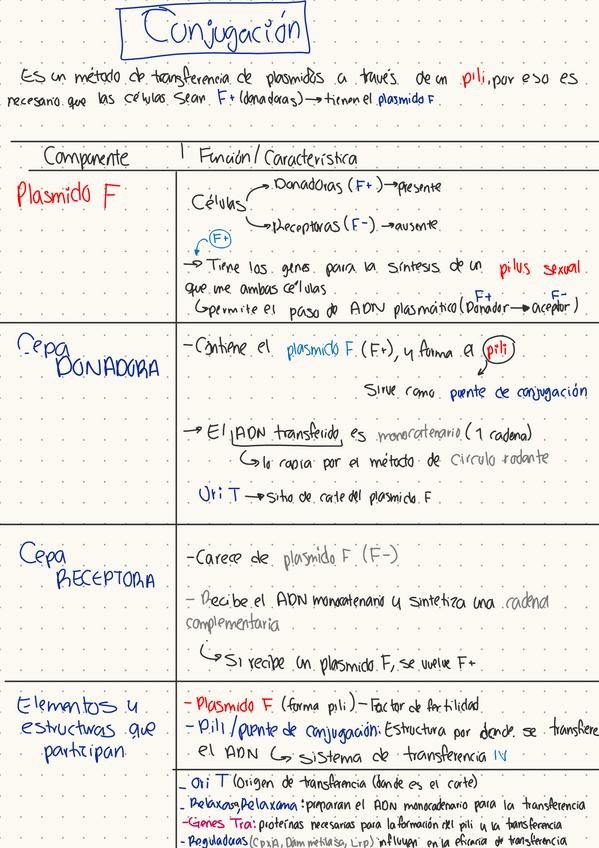 Conjugación
Es un método de transferencia de plasmidos a través de un pili, por eso es
necesario que las células sean F+ (donadoras) → tienen el plasmido F
Componente | Función/Característica
Plasmido F
Células → Donadoras (F+) → presente
→ Receptoras (F-) → ausente
F+
→ Tiene los genes para la síntesis de un pilus sexual
que une ambas células
F+ F-
↳ permite el paso de ADN plasmático (Donador → aceptor)
Cepa
DONADORA
- Contiene el plasmido F (F+), y forma el pili
Sirve como puente de conjugación
→ El ADN transferido es monocatenario (1 cadena)
↳ lo copia por el método de circulo rodante
Ori T → Sitio de corte del plasmido F
Cepa
RECEPTORA
- Carece de plasmido F (F-)
- Recibe el ADN monocatenario y sintetiza una cadena
complementaria
↳ Si recibe un plasmido F, se vuelve F+
Elementos y
estructuras que
participan
- Plasmido F (forma pili) - Factor de fertilidad
- Pili/puente de conjugación: Estructura por donde se transfiere
el ADN ↳ sistema de transferencia IV
- Ori T (Origen de transferencia (donde es el corte)
- Relaxasa, Relaxoma: preparan el ADN monocadenario para la transferencia
- Genes Tra: proteínas necesarias para la formación del pili y la transferencia
- Reguladoras (CpxA, Dam metilasa, Lrp) influyen en la eficacia de transferencia